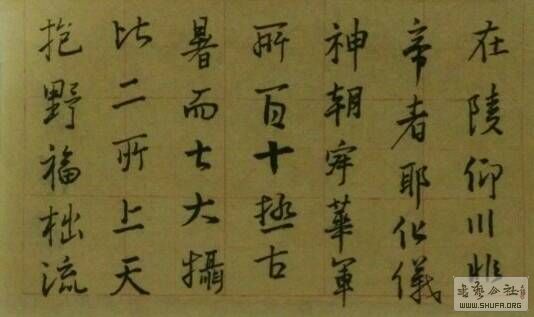 在陵仰川
帝者耶化儀
神朝舜華軍
所百十古
暑而七大攝
比二所上天
抱野福柮流
书艺公社
WWW.SHUFA.ORG